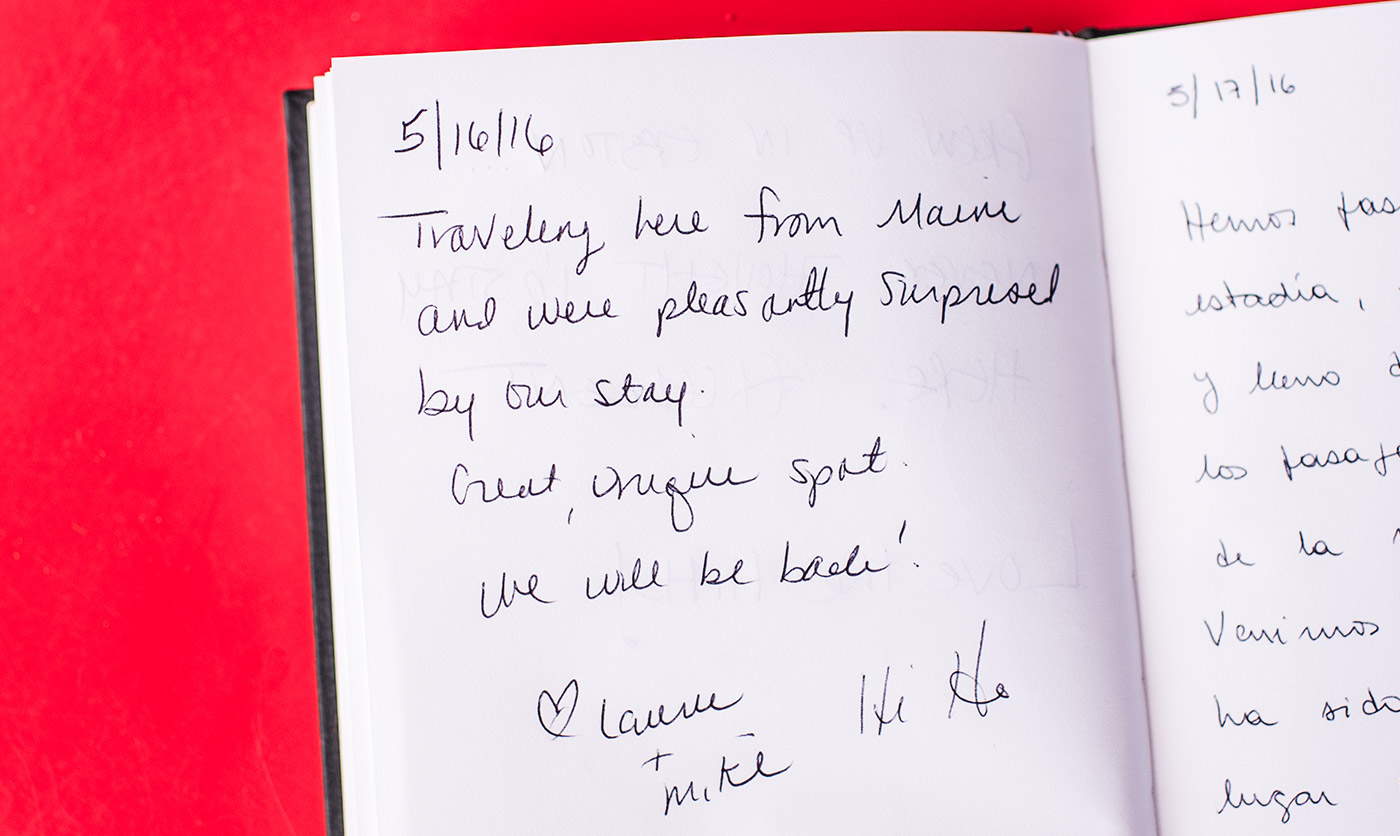 5/16/16
Traveling here from Maine
and were pleasantly surprised
by our stay.
Great, unique spot.
We will be back!
♡ Laurie Hi Ho
+
Mike
5/17/16
Hemos
estadía,
y lleno
los
de la
Venimos
ha sido
lugar